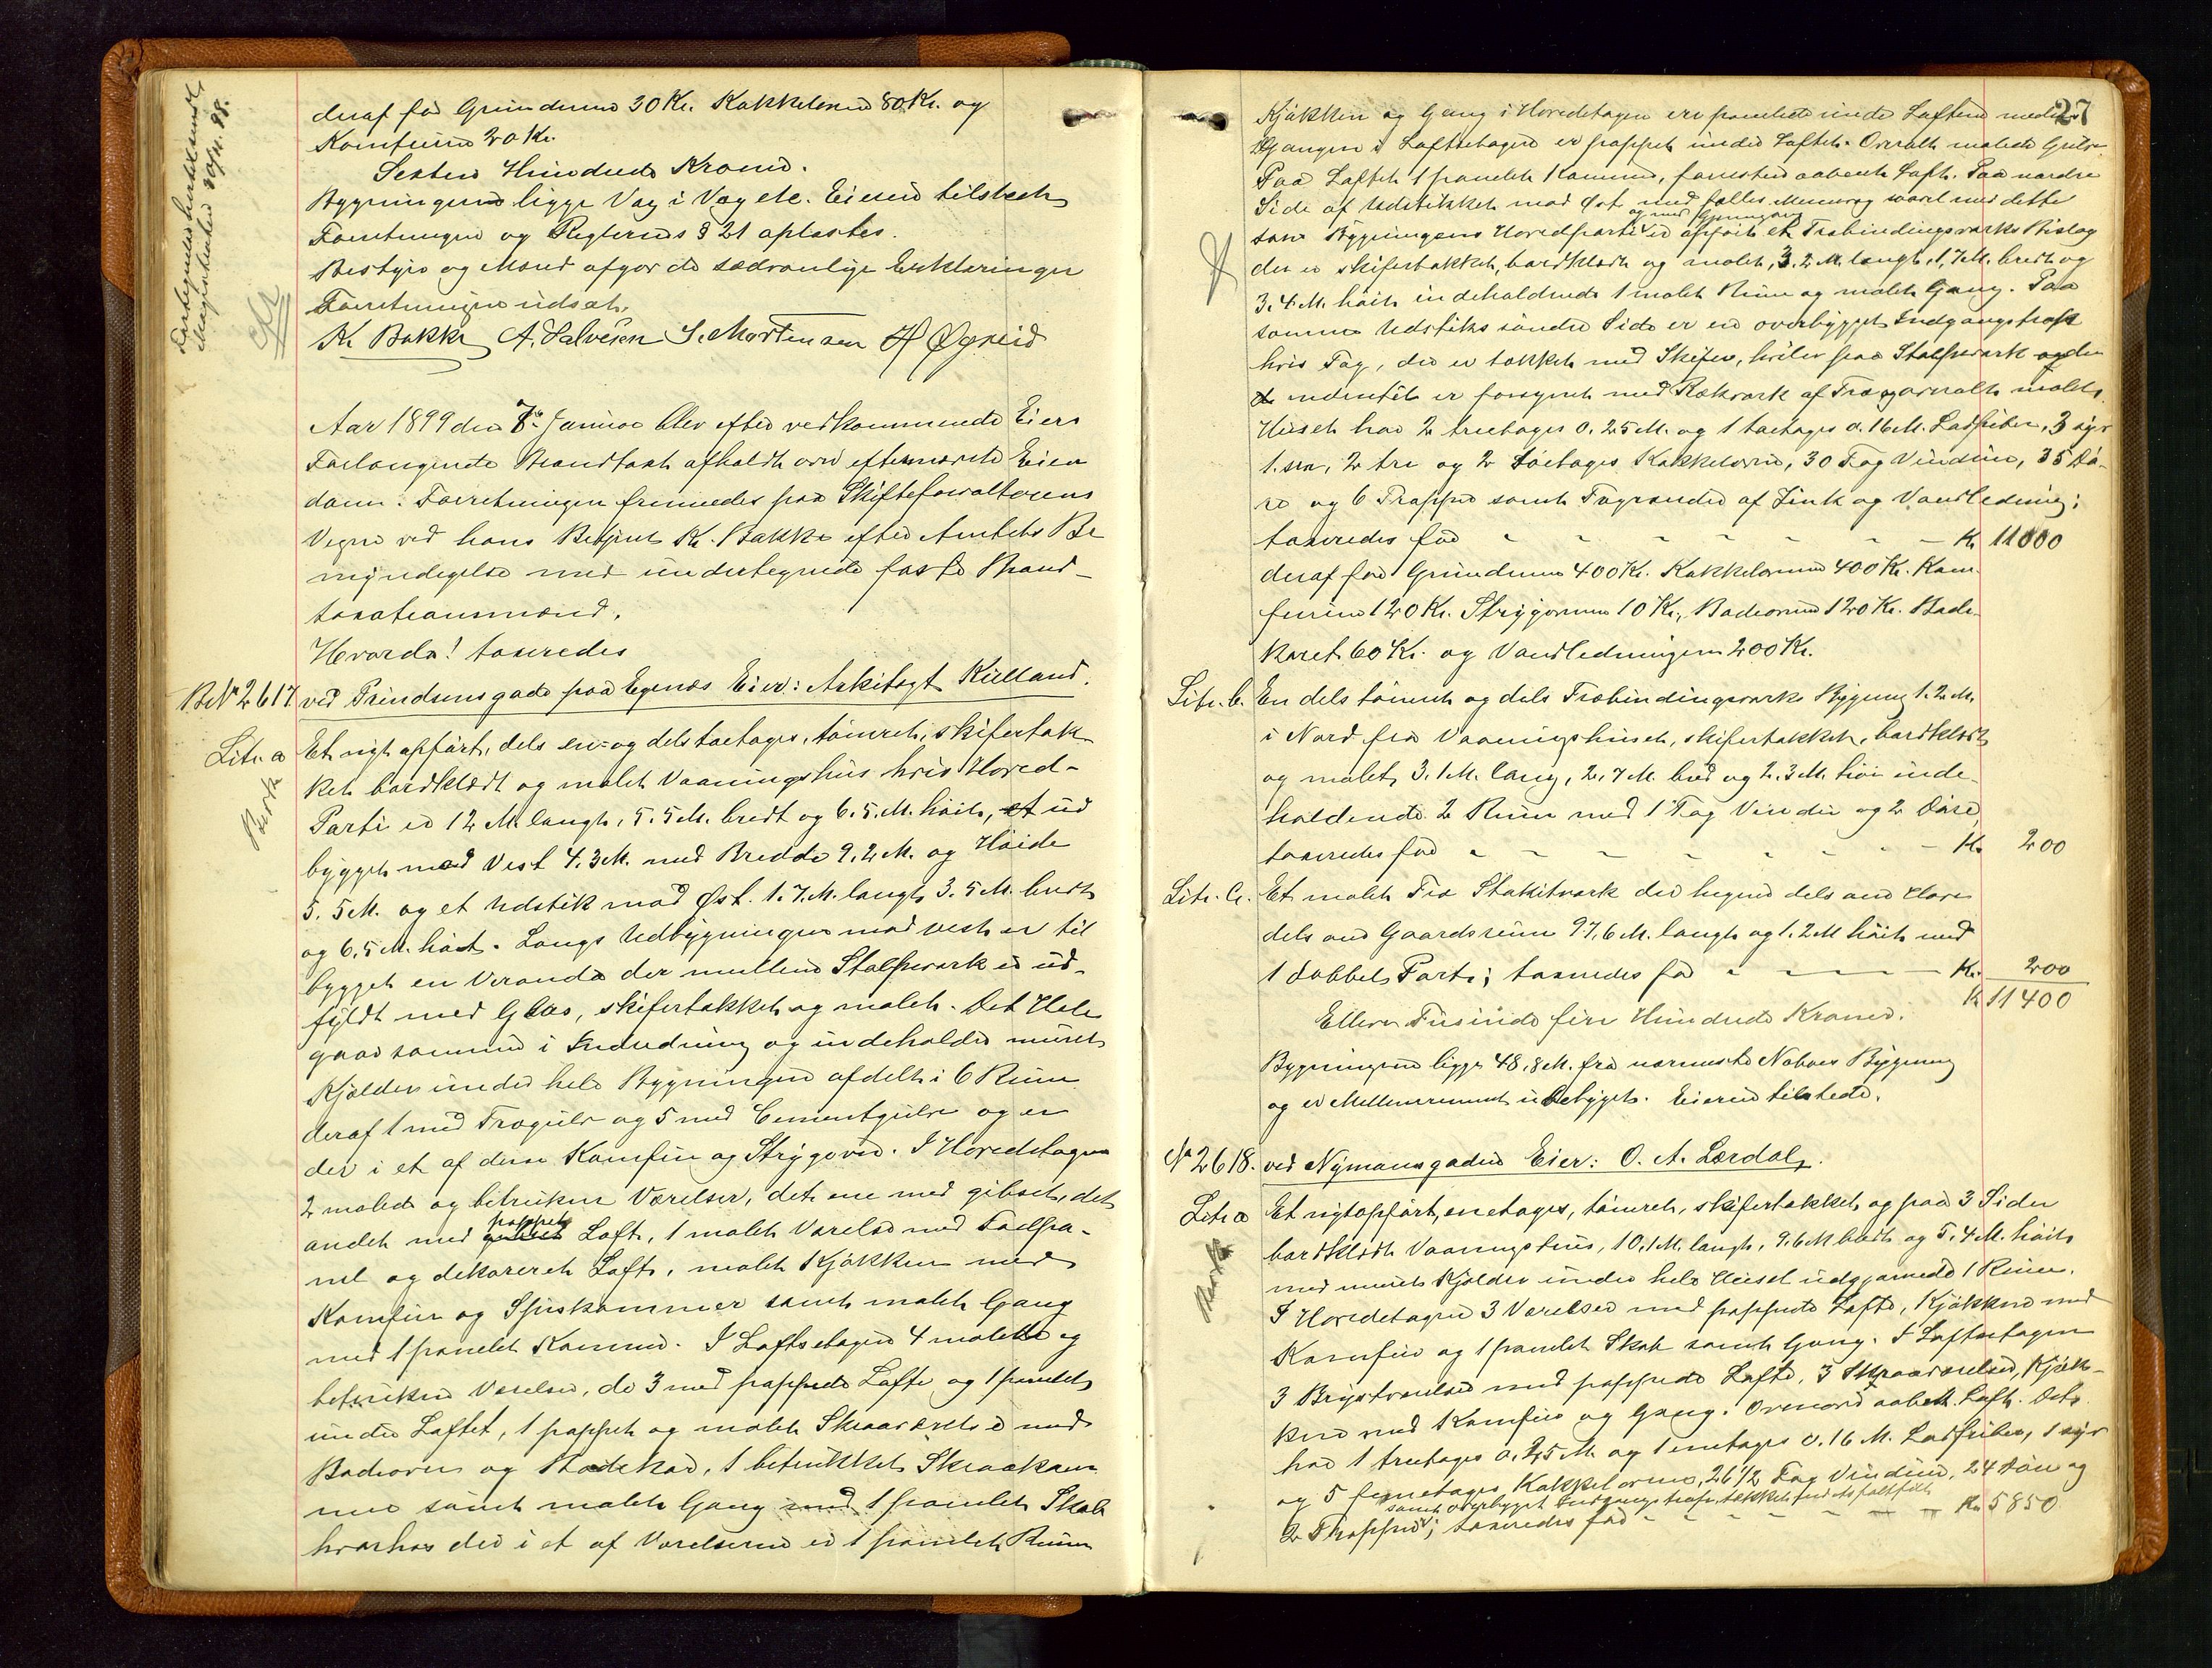 deraf for Grundmuren 30 Kr. Kakkelovnen 80 Kr. og
Komfuren 20 Kr.
Sexten Hundrede Kroner.
Bygningerne ligge Væg i Væg etc. Eieren tilstede
Forretningen og Reglernes § 21 oplæstes.
Bestyrer og Mænd afgav de sædvanlige Erklæringer
Forretningen udsat.
K. Bakke A. Salvesen S. Mortensen H Øgreid
Aar 1899 den 7de Januar blev efter vedkommende Eiers
Forlangende Brandtaxt afholdt over efternævnte Eien
domme. Forretningen fremmedes paa Skifteforvalterens
Vegne ved hans Betjent K. Bakke efter Amtets Be
myndigelse med undertegnede faste Brand-
taxationsmænd.
Hvorda! taxeredes
BNo 2617 ved Prindsensgade paa Egenæs Eier: Arkitegt Kielland.
Litr. a Et nyt opført, dels en- og dels toetages, tømret, skifertæk-
Bortk
ket bordklædt og malet Vaaningshus hvis Hoved-
Parti er 12 M. langt, 5.5 M. bredt og 6.5. M. høit, et ud
bygget mod Vest 4.3 M. med Bredde 9.2 M. og Høide
5.5 M. og et Udstik mod Øst. 1.7. M. langt 3.5 M. bredt
og 6.5 M. høit. Langs Udbygningen mod vest er til
bygget en Veranda der mellem Stolpeværk er ud-
fyldt med Glas, skifertækket og malet. Det Hele
gaar sammen i Indredning og indeholder muret
Kjælder under hele Bygningen afdelt i 6 Rum
deraf 1 med Trægulv og 5 med Cementgulv og er
der i et af disse Komfur og Strygovn. I Hovedetagen
2 malede og betrukne Værelser, det ene med gibset, det
andet med pappet Loft, 1 malet Værelse med Feltpa-
nel og dekoreret Loft, malet Kjøkken med
Komfur og Spiskammer samt malet Gang
med 1 panelet Kammer. I Loftsetagen 4 malede og
betrukne Værelser, de 3 med pappede Lofte og 1 panelet
under Loftet, 1 pappet og malet Skraaværelse med
Badeovn og Badekar, 1 betrukket Skraakam
mer samt malet Gang med 1 panelet Skab
hvorhos der i et af Værelserne er 1 panelet Rum
27
Kjøkken og Gang i Hovedetagen ere panelede under Loftene medens
Gangen i Loftsetagen er pappet under Loftet. Overalt malede Gulve
Paa Loftet 1 panelet Kammer, forresten aabent Loft. Paa nordre
Side af Udstikket mod Øst med fælles Murvæg saavel med dette
som Bygningens Hovedparti og med Gjennemgang er opført et Træbindingsværks Bislag
der er skifertækket, bordklædt og malet, 3.2 M. langt, 1.7 M. bredt og
3.4 M. høit indeholdende 1 malet Rum og malet Gang. Paa
samme Udstiks søndre Side er en overbygget Indgangstrap
hvis Tag, der er tækket med Skifer, hviler paa Stolpeværk og der
udentil er forsynet med Rækværk af Træ overalt malet.
Huset har 2 treetages a. 25 M. og 1 toetages a. 16 M. Ladpiber, 3 nye
1. sex, 2 tre og 2 toetages Kakkelovne, 30 Fag Vinduer, 35 Dø-
re og 6 Trapper samt Tagrender af Zink og Vandledning;
taxeredes for - - - - - - - Kr. 11000
deraf for Grundmuren 400 Kr. Kakkelovnene 400 Kr. Kom-
furene 120 Kr. Strygovnen 10 Kr., Badeovnen 120 Kr. Bade-
karet 60 Kr. og Vandledningen 200 Kr.
Litr. b. En dels tømret og dels Træbindingsværks Bygning 1.2 M.
i Nord fra Vaaningshuset, skifertækket, bordklædt
og malet, 3.1 M. lang, 2.7 M. bred og 2.3 M. høi inde-
holdende 2 Rum med 1 Fag Vindu og 2 Døre
taxeredes for - - - - - - - Kr. 200
Litr. c. Et malet Træ Stakitværk der hegner dels om Have
dels om Gaardsrum 97.6 M. langt og 1.2 M høit med
1 dobbelt Port; taxeredes for - - - - Kr. 200
Kr 11400
Elleve Tusinde fire Hundrede Kroner.
Bygningerne ligge 48.8 M. fra nærmeste Naboes Bygning
og er Mellemrummet ubebygget. Eieren tilstede.
No 2618. ved Nymansgaden Eier: O. A. Lærdal.
Litr a Et nytopført, enetages, tømret, skifertækket, og paa 3 Sider
Bortk
bordklædt Vaaningshus, 10.1 M. langt, 9.6 M bredt og 5.4 M. høit
med muret Kjælder under hele Huset udgjørende 1 Rum.
I Hovedetagen 3 Værelser med pappede Lofte, Kjøkken med
Komfur og 1 panelet Skab samt Gang. I Loftsetagen
3 Brystværelser med pappede Lofte, 3 Skraaværelser, Kjøk-
ken med Komfur og Gang. Ovenover aabent Loft. Det
har 1 treetages a. 25 M. og 1 enetages a. 16 M. Ladpiber, 1 nye
og 5 femetages Kakkelovne, 26 1/2 Fag Vinduer, 24 Døre og
samt overbygget Indgangstrap tækket med Asfaltfilt
2 Trapper; taxeredes for - - - - - Kr. 5850